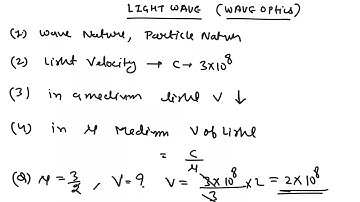 LIGHT WAVE (WAVE OPTICS)
(1) Wave Nature, Particle Natur
(2) Light Velocity → C → 3×10⁸
(3) in a medium light V ↓
(4) in μ Medium V of Light
= C/μ
(Q) μ = 3/2, V = ? V = 3×10⁸/3 × 2 = 2×10⁸